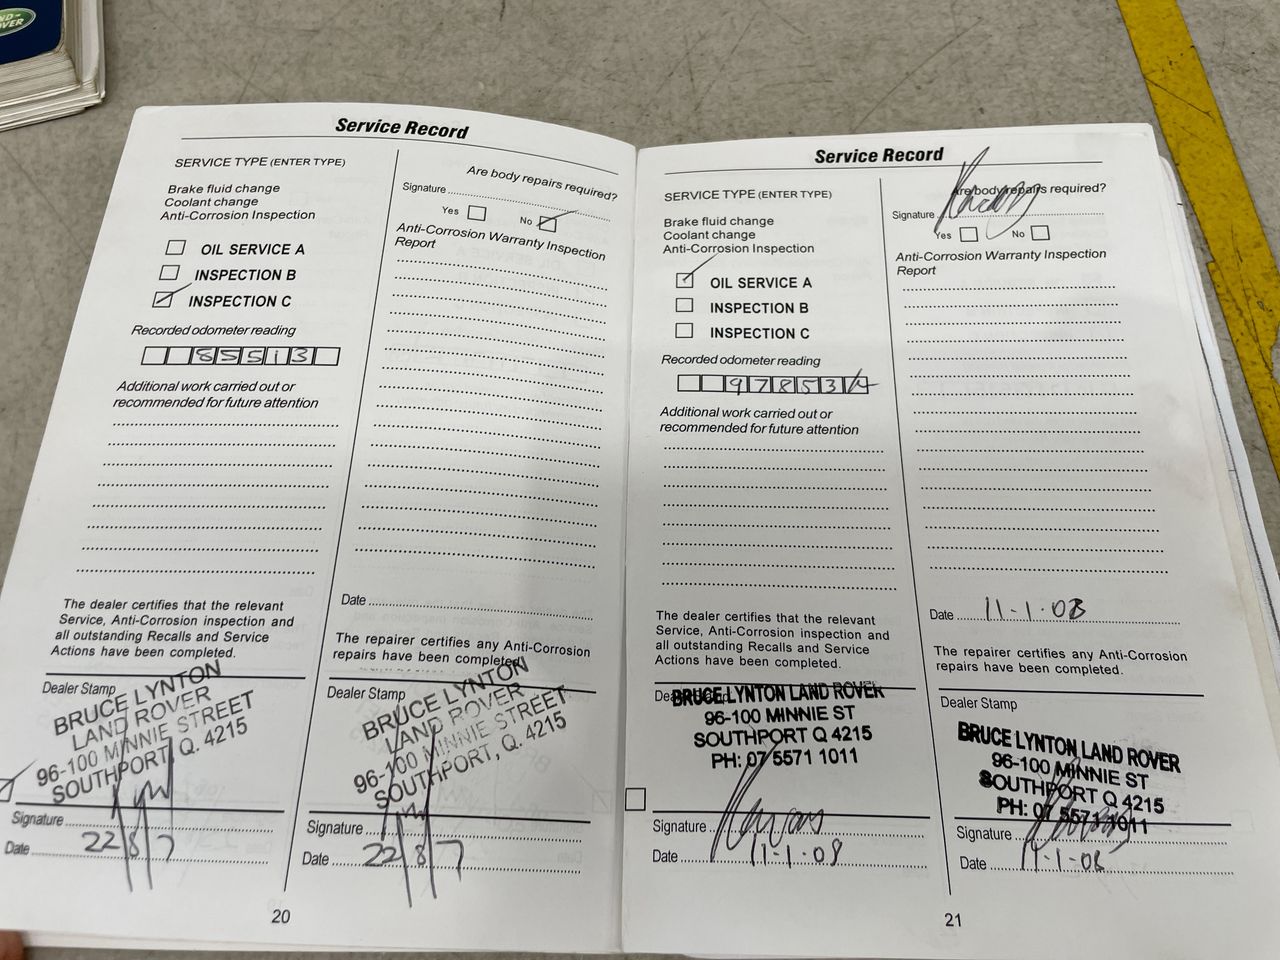 Service Record
SERVICE TYPE (ENTER TYPE)
Brake fluid change
Coolant change
Anti-Corrosion Inspection
OIL SERVICE A
INSPECTION B
INSPECTION C
Recorded odometer reading
85513
Additional work carried out or
recommended for future attention
The dealer certifies that the relevant
Service, Anti-Corrosion inspection and
all outstanding Recalls and Service
Actions have been completed.
Dealer Stamp
BRUCE LYNTON
LAND ROVER
96-100 MINNIE STREET
SOUTHPORT, Q. 4215
Signature
Date 22/8/7
Are body repairs required?
Signature
Yes No
Anti-Corrosion Warranty Inspection
Report
Date
The repairer certifies any Anti-Corrosion
repairs have been completed
Dealer Stamp
BRUCE LYNTON
LAND ROVER
96-100 MINNIE STREET
SOUTHPORT, Q. 4215
Signature
Date 22/8/7
20
Service Record
SERVICE TYPE (ENTER TYPE)
Brake fluid change
Coolant change
Anti-Corrosion Inspection
OIL SERVICE A
INSPECTION B
INSPECTION C
Recorded odometer reading
97853
Additional work carried out or
recommended for future attention
The dealer certifies that the relevant
Service, Anti-Corrosion inspection and
all outstanding Recalls and Service
Actions have been completed.
Dealer Stamp
BRUCE LYNTON LAND ROVER
96-100 MINNIE ST
SOUTHPORT Q 4215
PH: 07 5571 1011
Signature
Date 11-1-08
Are body repairs required?
Signature
Yes No
Anti-Corrosion Warranty Inspection
Report
Date 11-1-08
The repairer certifies any Anti-Corrosion
repairs have been completed.
Dealer Stamp
BRUCE LYNTON LAND ROVER
96-100 MINNIE ST
SOUTHPORT Q 4215
PH: 07 5571 1011
Signature
Date 11-1-08
21